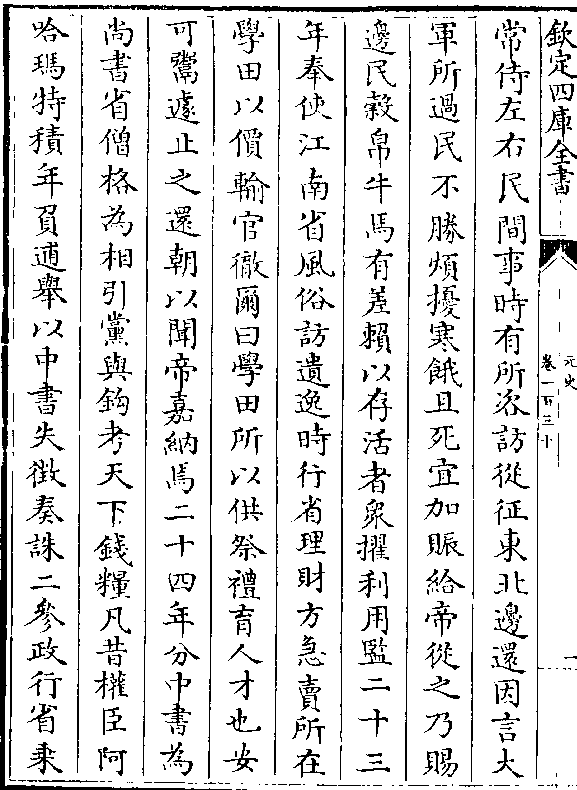 欽定四庫全書
元史
卷一百三十
一
常侍左右民間事時有所咨訪從征東北邊還因言大
軍所過民不勝煩擾寒餓且死宜加賑給帝從之乃賜
邊民穀帛牛馬有差賴以存活者衆擢利用監二十三
年奉使江南省風俗訪遺逸時行省理財方急賣所在
學田以價輸官徹爾曰學田所以供祭禮育人才也安
可鬻遽止之還朝以聞帝嘉納焉二十四年分中書為
尚書省僧格為相引黨與鈎考天下錢糧凡昔權臣阿
哈瑪特積年負逋舉以中書失徴奏誅二參政行省乗